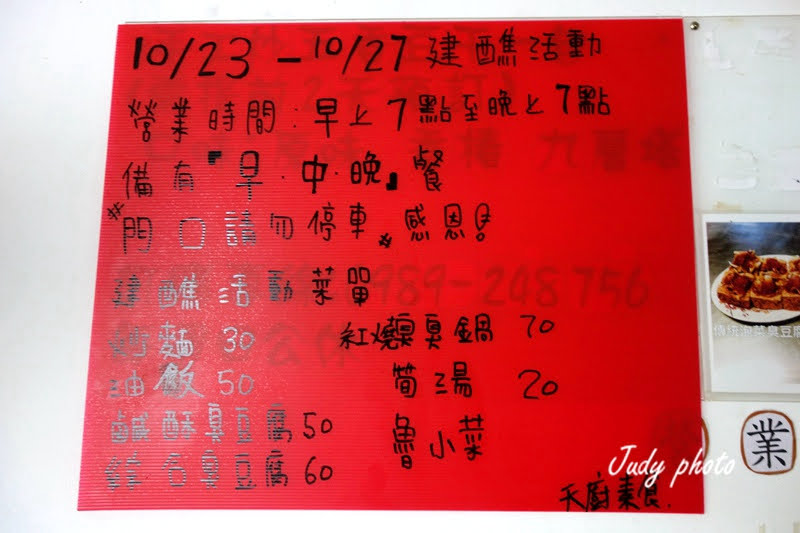 10/23 - 10/27 建醮活動
營業時間:早上7點至晚上7點
備有『早.中.晚』餐
※門口請勿停車※感恩!
建醮活動菜單
炒麵 30 紅燒臭臭鍋 70
油飯 50 筍湯 20
鹹酥臭豆腐 50 魯小菜
綜合臭豆腐 60
天廚素食.
989-248756
傳統泡菜臭豆腐
業
Judy photo